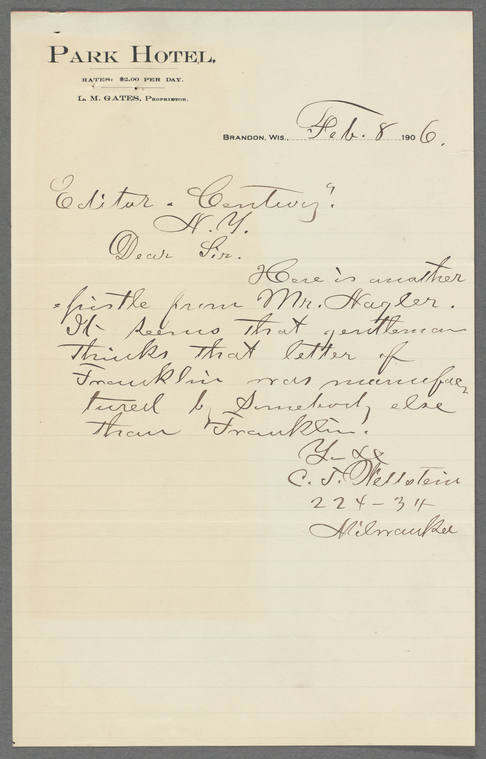 PARK HOTEL,
RATES: $2.00 PER DAY.
L. M. GATES, PROPRIETOR.
BRANDON, WIS., Feb. 8 1906.
Editor "Century".
N.Y.
Dear Sir.
Here is another
epistle from Mr. Hagler.
It seems that gentleman
thinks that letter of
Franklin was manufac
tured by Somebody else
than Franklin!
C. T. Wellstein
224 - 34
Milwaukee